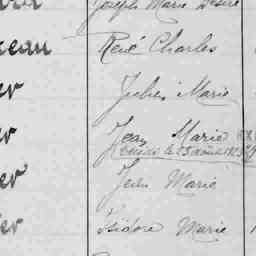 Joseph Marie Désiré
eau René Charles
er Julien Marie
er Jean Marie
Décédé le
er Jean Marie
er Isidore Marie